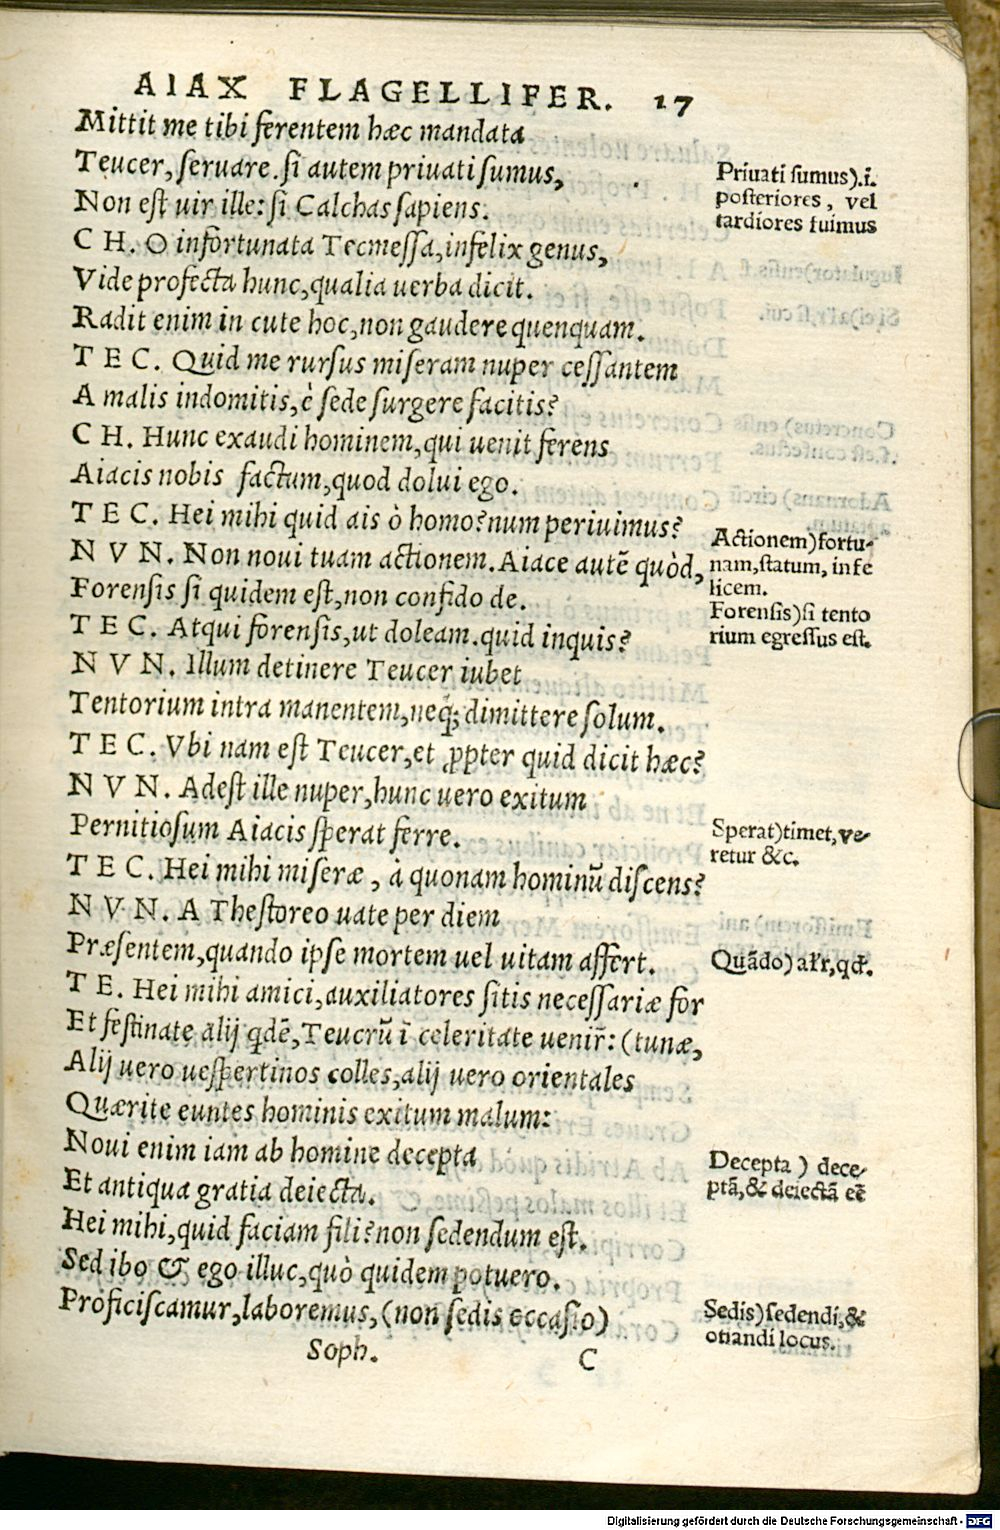 AIAX FLAGELLIFER. 17
Mittit me tibi ferentem hæc mandata
Teucer, ſeruare. ſi autem priuati ſumus,
Non eſt uir ille: ſi Calchas ſapiens.
C H. O infortunata Tecmeſſa, infelix genus,
Vide profecta hunc, qualia uerba dicit.
Radit enim in cute hoc, non gaudere quenquam.
T E C. Quid me rurſus miſeram nuper ceſſantem
A malis indomitis, è ſede ſurgere facitis?
C H. Hunc exaudi hominem, qui uenit ferens
Aiacis nobis factum, quod dolui ego.
T E C. Hei mihi quid ais ò homo? num periuimus?
N V N. Non noui tuam actionem. Aiace autē quòd,
Forenſis ſi quidem eſt, non confido de.
T E C. Atqui forenſis, ut doleam. quid inquis?
N V N. Illum detinere Teucer iubet
Tentorium intra manentem, neq; dimittere ſolum.
T E C. Vbi nam eſt Teucer, et ꝓpter quid dicit hæc?
N V N. Adeſt ille nuper, hunc uero exitum
Pernitioſum Aiacis ſperat ferre.
T E C. Hei mihi miſeræ, à quonam hominū diſcens?
N V N. A Theſtoreo uate per diem
Præſentem, quando ipſe mortem uel uitam affert.
T E. Hei mihi amici, auxiliatores ſitis neceſſariæ for
Et feſtinate alij qdē, Teucrū ī celeritate uenir̄: (tunæ,
Alij uero ueſpertinos colles, alij uero orientales
Quærite euntes hominis exitum malum:
Noui enim iam ab homine decepta
Et antiqua gratia deiecta.
Hei mihi, quid faciam fili? non ſedendum eſt.
Sed ibo & ego illuc, quò quidem potuero.
Proficiſcamur, laboremus, (non ſedis occaſio)
Soph. C
Priuati ſumus) .i.
poſteriores, vel
tardiores fuimus
Actionem) fortu-
nam, ſtatum, infe
licem.
Forenſis) ſi tento
rium egreſſus eſt.
Sperat) timet, ve-
retur &c.
Quādo) al'r, qd.
Decepta) dece-
ptā, & deiectā eē
Sedis) ſedendi, &
otiandi locus.
Digitalisierung gefördert durch die Deutsche Forschungsgemeinschaft - DFG